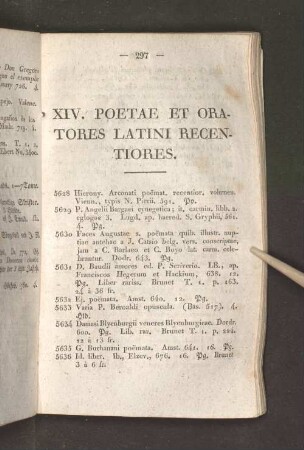 — 297 —
XIV. POETAE ET ORA-
TORES LATINI RECEN-
TIORES.
5628 Hierony. Arconati poëmat. recentior. volumen.
Vienn., typis N. Pirrii, 591. Pg.
5629 P. Angelii Bargaei cynegetica; it. carmin. libb. 2.
eglogae 3. Lugd. ap. haered. S. Gryphii, 561.
4. Pg.
5630 Faces Augustae s. poëmata quib. illustr. nuptiar
antehac a J. Catsio belg. vers. conscriptae,
jam a C. Barlaeo et C. Boyo lat. carm. cele-
brantur. Dordr. 643. Pg.
5631 D. Baudii amores ed. P. Scriverio. LB., ap.
Franciscum Hegerum et Hackium, 638. 12.
Pg. Liber rariss. Brunet T. 1, p. 163.
24 à 36 fr.
5632 Ej. poëmata. Amst. 640. 12. Pg.
5633 Varia P. Beroaldi opuscula. (Bas. 517.) 4.
Hlb.
5634 Damasi Blyenburgii veneres Blyenburgicae. Dordr.
600. Pg. Lib. rar. Brunet T. 1, p. 224.
12 à 15 fr.
5635 G. Buchanani poëmata. Amst. 641. 16. Pg.
5636 Id. liber. Ib., Elzev., 676. 16. Pg. Brunet
3 à 6 fr.